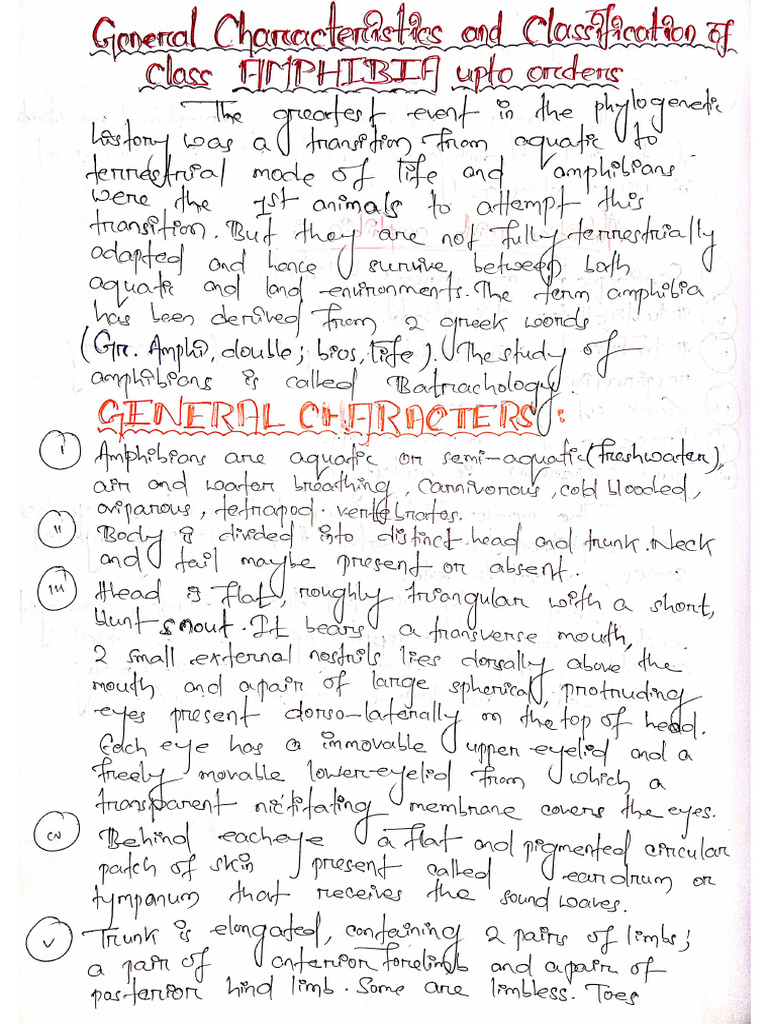 General Characteristics and Classification of
Class AMPHIBIA upto orders
The greatest event in the phylogenetic
history was a transition from aquatic to
terrestrial mode of life and amphibians
were the 1st animals to attempt this
transition. But they are not fully terrestrially
adapted and hence survive between both
aquatic and land environments. The term amphibia
has been derived from 2 greek words
(Gr. Amphi, double; bios, life). The study of
amphibians is called Batrachology.
GENERAL CHARACTERS:
i Amphibians are aquatic or semi-aquatic (freshwater),
air and water breathing, carnivorous, cold blooded,
oviparous, tetrapod vertebrates.
ii Body is divided into distinct head and trunk. Neck
and tail maybe present or absent.
iii Head is flat, roughly triangular with a short,
blunt snout. It bears, a transverse mouth,
2 small external nostrils lies dorsally above the
mouth and a pair of large spherical, protruding
eyes present dorso-laterally on the top of head.
Each eye has a immovable upper eyelid and a
freely movable lower-eyelid from which a
transparent nictitating membrane covers the eyes.
iv Behind each eye a flat and pigmented circular
patch of skin present called eardrum or
tympanum that receives the sound waves.
v Trunk is elongated, containing 2 pairs of limbs;
a pair of anterior forelimb and a pair of
posterior hind limb. Some are limbless. Toes